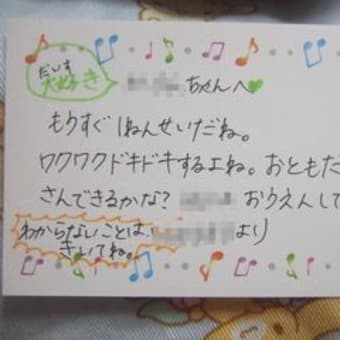 だいす
大好き
ちゃんへ
もうすぐ1ねんせいだね。
ワクワクドキドキするよね。おともだ
さんできるかな? おうえんして
わからないことは、
きいてね。
より